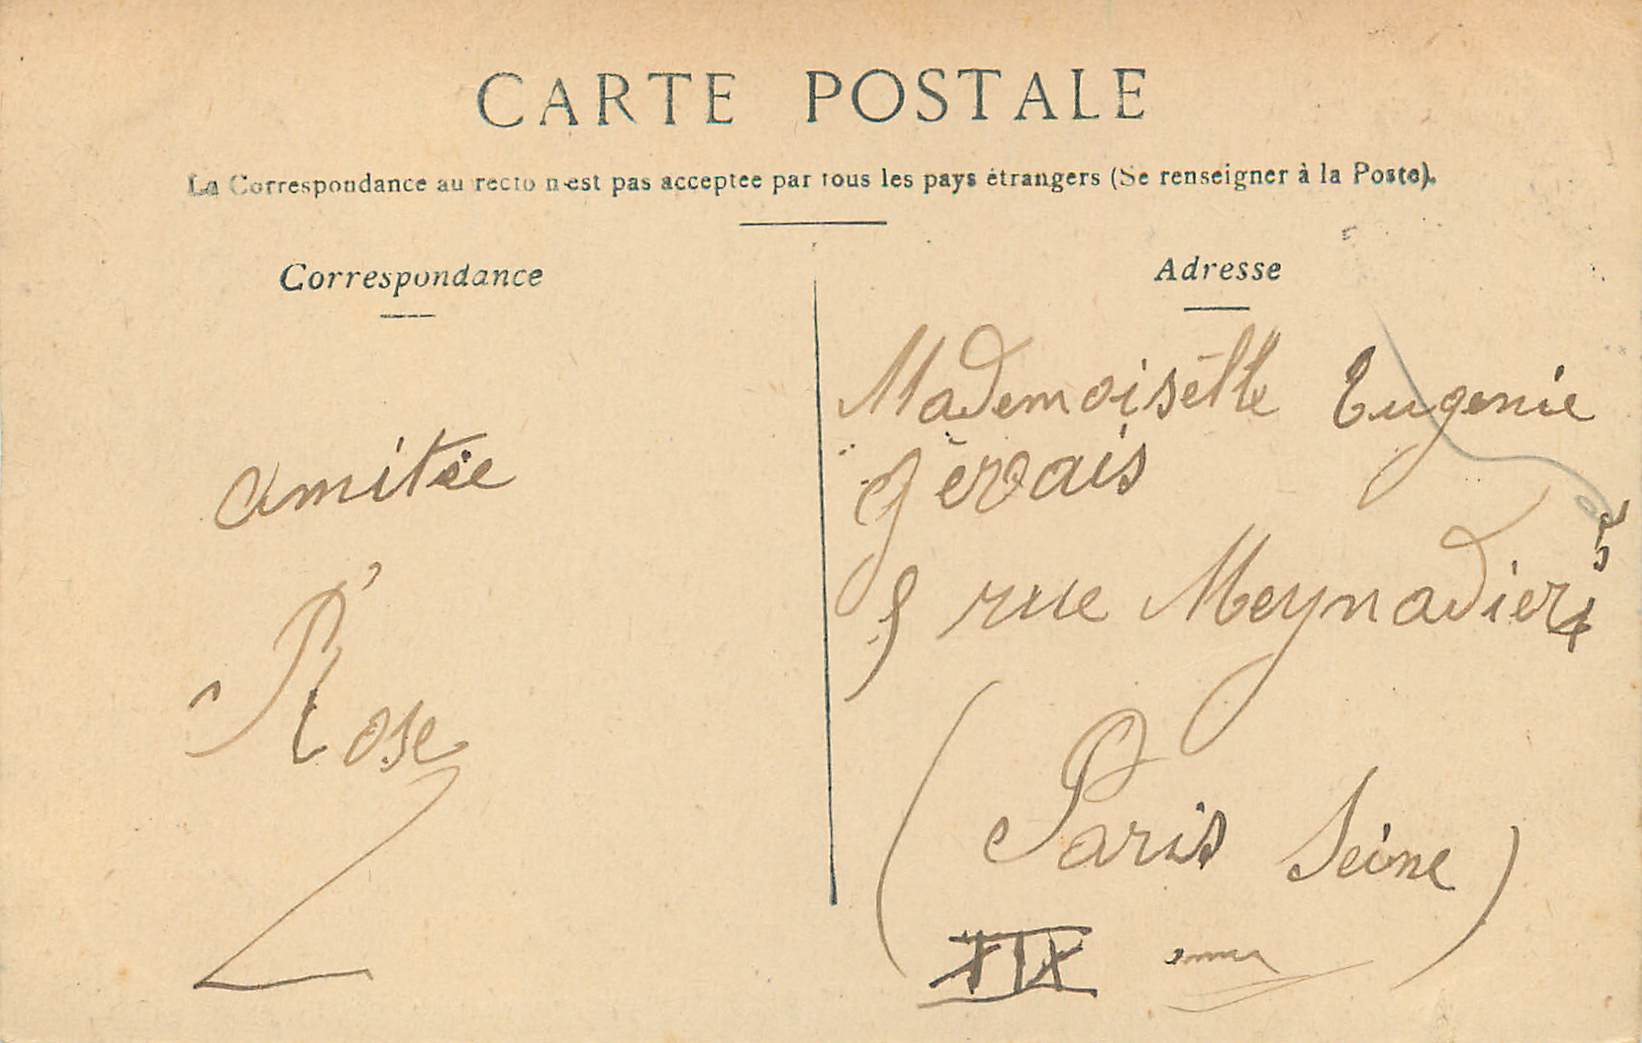 CARTE POSTALE
La Correspondance au recto n'est pas acceptee par tous les pays étrangers (Se renseigner à la Poste).
Correspondance
amitée
Rose
Adresse
Mademoiselle Eugenie
Gervais
5
rue Meynadier
(Paris Seine)
XIX